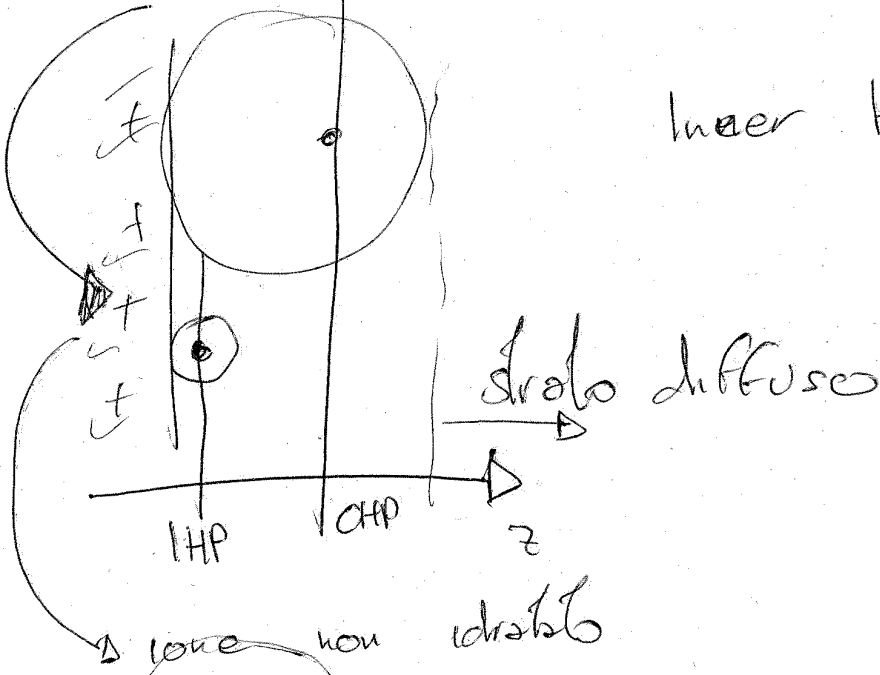 Inner
+
+
+
+
strato diffuso
IHP
OHP
z
ione non idratato